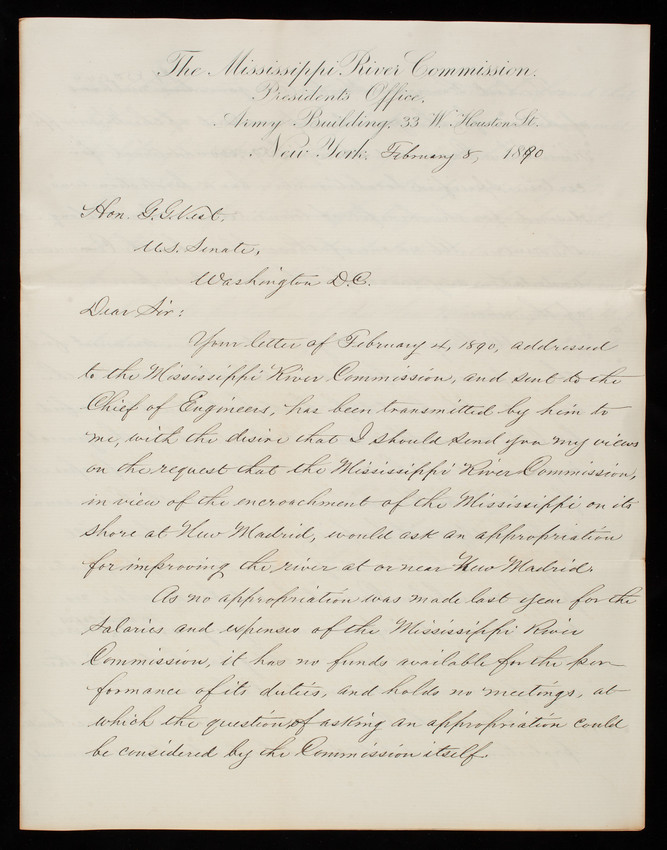 The Mississippi River Commission.
President's Office,
Army Building, 33 W. Houston St.
New York, February 8, 1890
Hon. G. G. Vest.
U.S. Senate,
Washington D.C.
Dear Sir:
Your letter of February 4, 1890, addressed
to the Mississippi River Commission, and sent to the
Chief of Engineers, has been transmitted by him to
me, with the desire that I should send you my views
on the request that the Mississippi River Commission,
in view of the encroachment of the Mississippi on its
shore at New Madrid, would ask an appropriation
for improving the river at or near New Madrid.
As no appropriation was made last year for the
salaries and expenses of the Mississippi River
Commission, it has no funds available for the per-
formance of its duties, and holds no meetings, at
which the question of asking an appropriation could
be considered by the Commission itself.